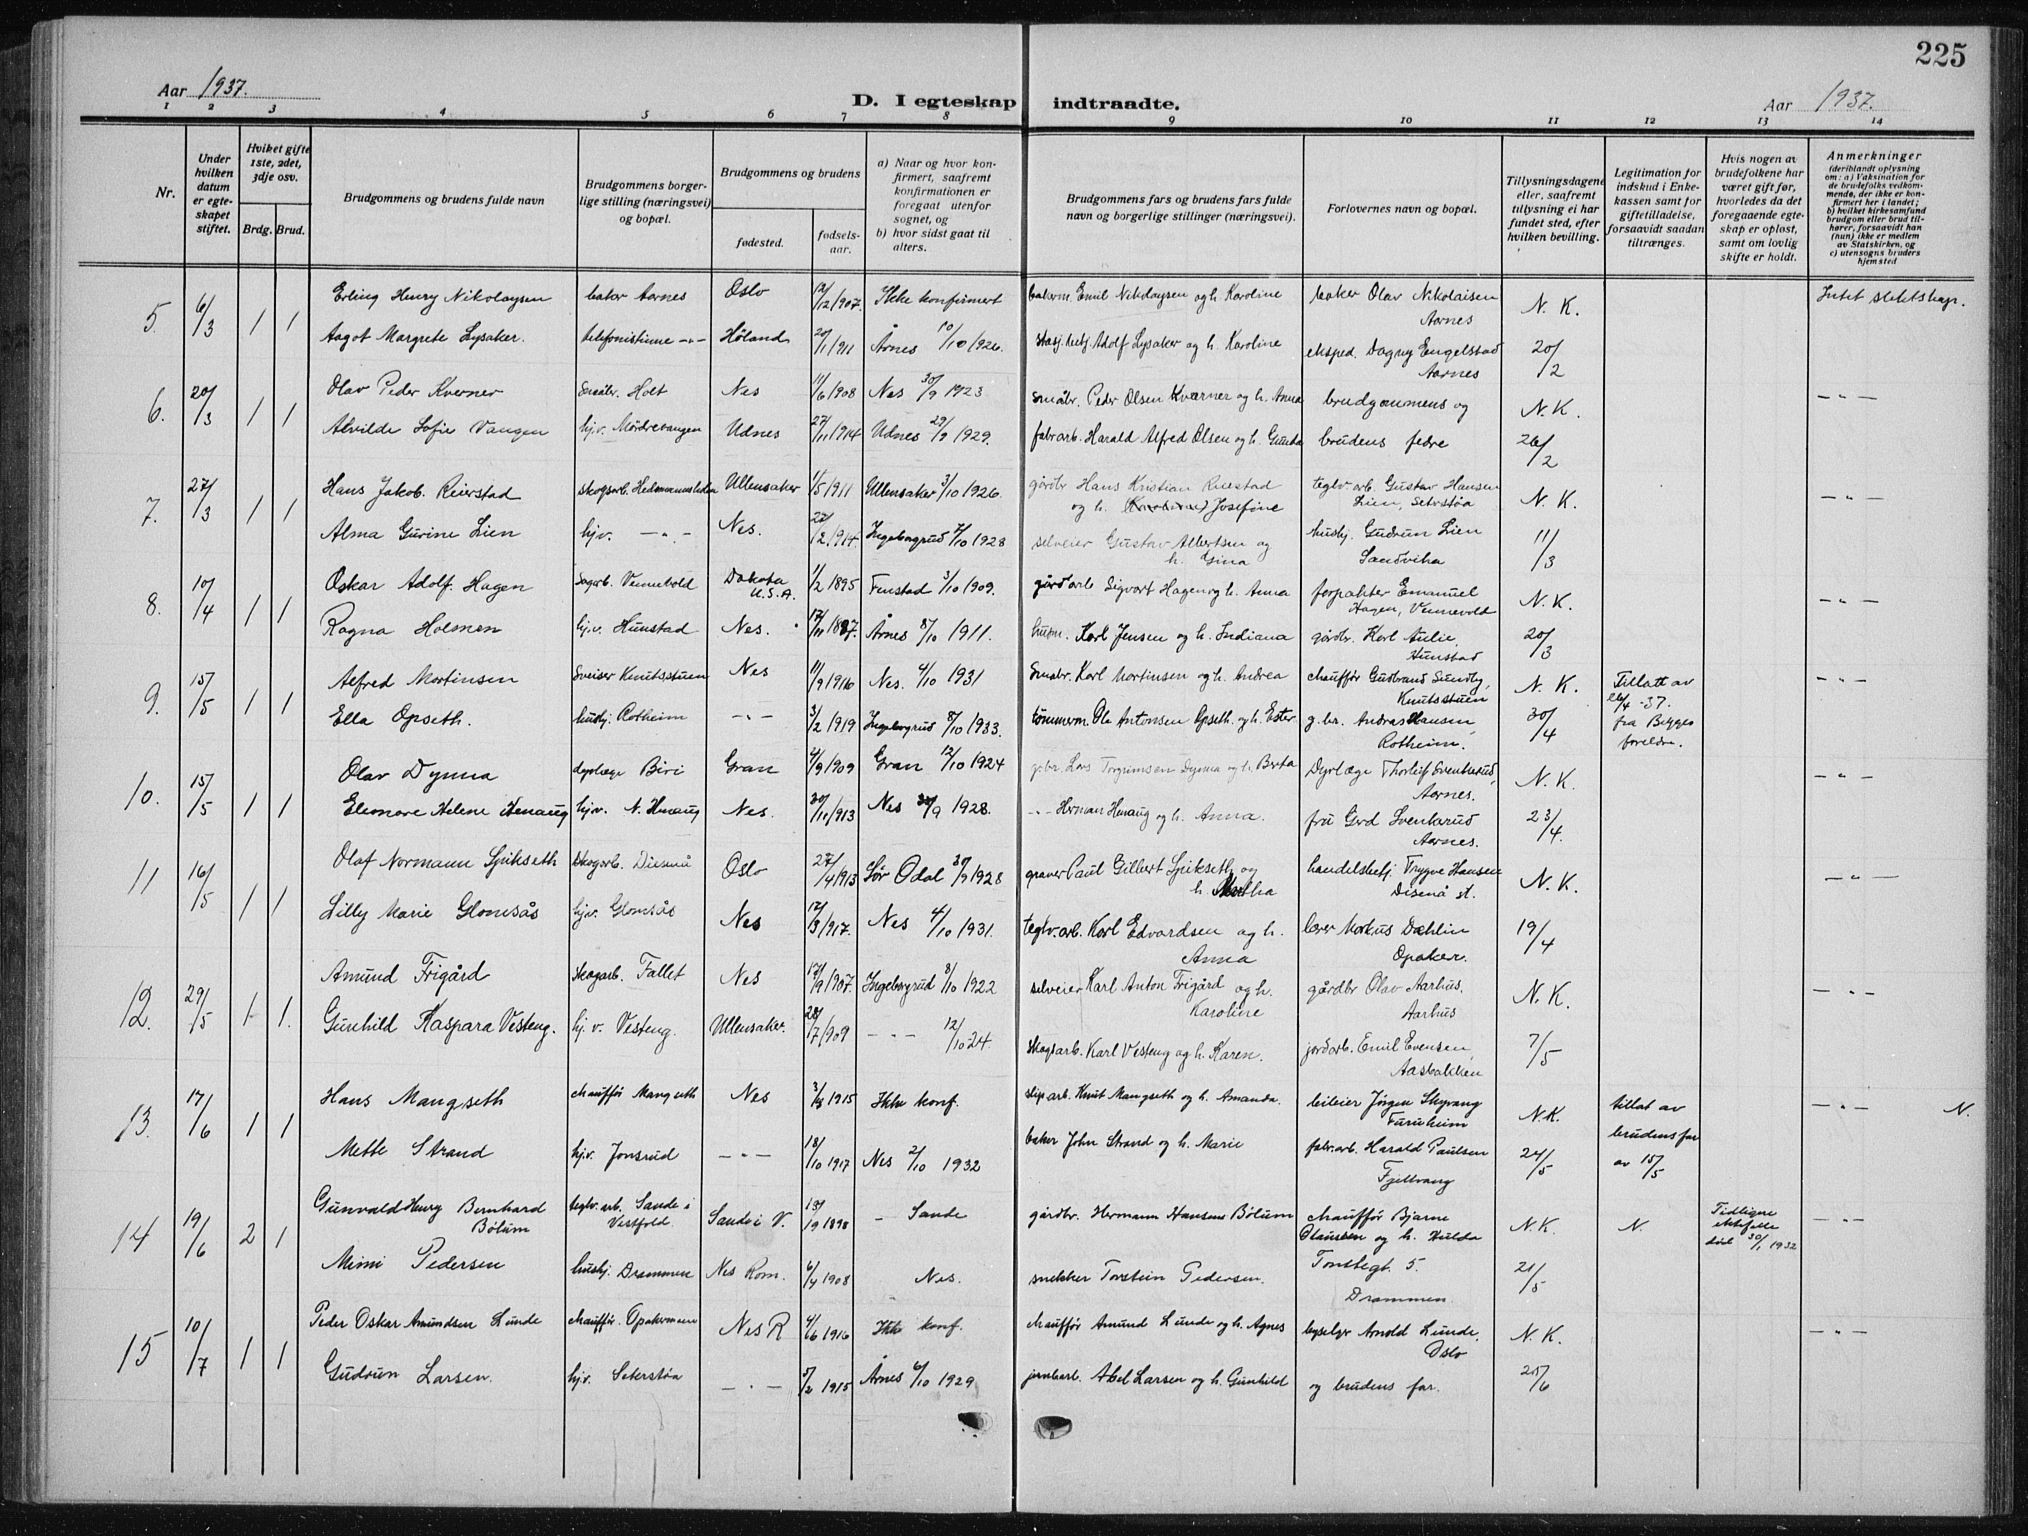 225
Aar 1937. D. I egteskap indtraadte. Aar 1937.
1 2 3 4 5 6 7 8 9 10 11 12 13 14
Nr.
Under hvilken datum er egteskapet stiftet.
Hvilket gifte 1ste, 2det, 3dje osv.
Brdg. Brud.
Brudgommens og brudens fulde navn
Brudgommens borgerlige stilling (næringsvei) og bopæl.
Brudgommens og brudens
fødested.
fødselsaar.
a) Naar og hvor konfirmert, saafremt konfirmationen er foregaat utenfor sognet, og
b) hvor sidst gaat til alters.
Brudgommens fars og brudens fars fulde navn og borgerlige stillinger (næringsvei).
Forlovernes navn og bopæl.
Tillysningsdagene eller, saafremt tillysning ei har fundet sted, efter hvilken bevilling.
Legitimation for indskud i Enkekassen samt for giftetilladelse, forsaavidt saadan tiltrænges.
Hvis nogen av brudefolkene har været gift før, hvorledes da det foregaaende egteskap er opløst, samt om lovlig skifte er holdt.
Anmerkninger
(deriblandt oplysning om: a) Vaksination for de brudefolks vedkommende, der ikke er konfirmert her i landet; b) hvilket kirkesamfund brudgom eller brud tilhører, forsaavidt han (hun) ikke er medlem av Statskirken, og c) utensogns bruders hjemsted
5. 6/3 1 1 Erling Henry Nikolaysen baker Aarnes Oslo 12/12 1907. Ikke konfirmert bakerm. Emil Nikolaysen og h. Karoline baker Olav Nikolaisen Aarnes N. K. Intet slektskap.
Aagot Margrete Lysaker. telefonistinne -"- Høland 20/11 1911 Årnes 10/10 1926. Adolf Lysaker og h. Karoline eksped. Dagny Engelstad Aarnes 20/2
6. 20/3 1 1 Olav Peder Kverner Småbr. Holt Nes 11/6 1908 Nes 30/9 1923 småbr. Peder Olsen Kværner og h. Anna brudgommens og N. K. - " -
Alvilde Sofie Vangen hj.v. Mødrevangen Udnes 27/11 1914 Udnes 29/9 1929. fabr.arb. Harald Alfred Olsen og h. Gunda brudens fedre 26/2
7. 27/3 1 1 Hans Jakob Reierstad skogsarb. Ullensaker 1/5 1911 Ullensaker 3/10 1926. gårdbr Hans Kristian Reiestad og h. Josefine teglv.arb. Gustav Hansen Lien, Seterstøa N. K. - " -
Alma Gurine Lien hjv. - " - Nes. 22/2 1914. Ingeborgrud 7/10 1928 selveier Gustav Albertsen og h. Gina hushj. Gudrun Lien Sandvika 11/3
8. 10/4 1 1 Oskar Adolf Hagen Sagarb. Vennevold Dakota U.S.A. 1/2 1895 Fenstad 3/10 1909. gårdarb Sigvart Hagen og h. Anna forpakter Emanuel Hagen, Vennevold N. K. - " -
Ragna Holmen hj.v. Hunstad Nes. 17/11 1897. Årnes 8/10 1911. husm. Karl Jensen og h. Indiana gårdbr. Karl Aulie, Hunstad 20/3
9. 15/5 1 1 Alfred Martinsen Sveiser Knutsstuen Nes 11/9 1916 Nes. 4/10 1931 Småbr. Karl Martinsen og h. Andrea chauffør Gudbrand Sundby, Knutsstuen N. K. Tillatt av 26/4 - 37. - " -
Ella Opseth. hushj. Rotheim - " - 3/2 1919 Ingeborgrud 8/10 1933. tømmerm. Ole Antonsen Opseth og h. Ester g.br. Andras Hansen, Rotheim. 30/4 fra Begges foreldre.
10. 15/5 1 1 Olav Dynna dyrlæge Biri Gran 4/9 1909 Gran 12/10 1924 g.br. Lars Torgrimsen Dynna og h. Berta Dyrlæge Thorleif Svenkerud, Aarnes. N. K. - " -
Eleonore Helene Henaug hj.v. N. Henaug Nes. 30/11 1913 Nes 30/9 1928. - " - Herman Henaug og h. Anna. fru Gerd Svenkerud Aarnes. 23/4.
11 16/5 1 1 Olaf Normann Spikseth skogarb. Disenå Oslo 27/4 1913 Sør Odal 30/9 1928 graver Paul Gilbert Spikseth og h. Martha handelsbetj. Trygve Hansen Disenå st. N. K. - " -
Lilly Marie Glomsås hj.v. Glomsås Nes 12/3 1917. Nes 4/10 1931. teglv.arb. Karl Edvardsen og h. Anna lærer Markus Dahlin Opaker. 19/4
12. 29/5 1 1. Amund Frigård skogarb. Fallet Nes 17/9 1907. Ingeborgrud 8/10 1922 selveier Karl Anton Frigård og h. Karoline gårdbr Olav Aarhus, Aarhus N. K. - " -
Gunhild Kaspara Vesteng. hj.v. Vesteng. Ullensaker. 28/7 1909 - " - 12/10 24. skogsarb. Karl Vesteng og h. Karen. jordarb. Emil Evensen, Aasbakken 7/5
13. 17/6 1 1 Hans Mangseth chauffør Mangseth Nes 3/8 1915 Ikke konf. slip.arb. Knut Mangseth og h. Amanda. leileier Jørgen Skyvang Furuheim N. K. tillat av - " - N.
Mette Strand hj.v. Jonsrud - " - 18/10 1917 Nes 2/10 1932 baker John Strand og h. Marie fabr.arb. Harald Paulsen Fjellvang 24/5 brudens far av 15/5
14 19/6 2 1 Gunvald Henry Bernhard Bølum teglv.arb. Sande i Vestfold. Sande i V. 13/9 1898 - Sande gårdbr. Hermann Hansen Bølum chauffør Bjarne Olaussen og h. Hulda N. K. N Tidligere ektefelle død 30/1 1932 - " -
Mimi Pedersen hushj. Drammen Nes Rom. 6/4 1908 Nes. snekker Torstein Pedersen. Tonstegt. 5. Drammen 21/5
15 10/7 1 1 Peder Oskar Amundsen Lunde chauffør. Opakermoen Nes R 4/6 1916 Ikke konf. chauffør Amund Lunde og h. Agnes byselger Arnold Lunde, Oslo N. K. - " -
Gudrun Larsen. hjv. Seterstøa - " - 5/2 1915 Årnes 6/10 1929 jernbarb. Abel Larsen og h. Gunhild og brudens far. 25/6